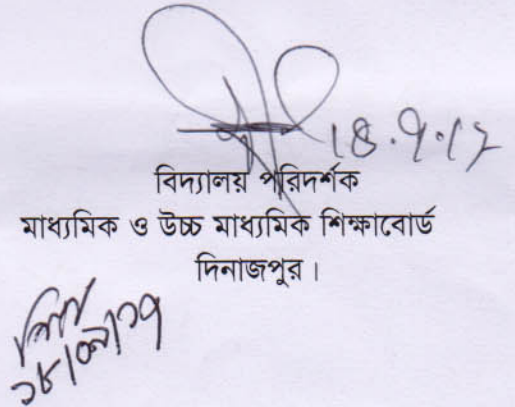 18.9.17
বিদ্যালয় পরিদর্শক
মাধ্যমিক ও উচ্চ মাধ্যমিক শিক্ষাবোর্ড
দিনাজপুর।
১৮/০৯/১৭